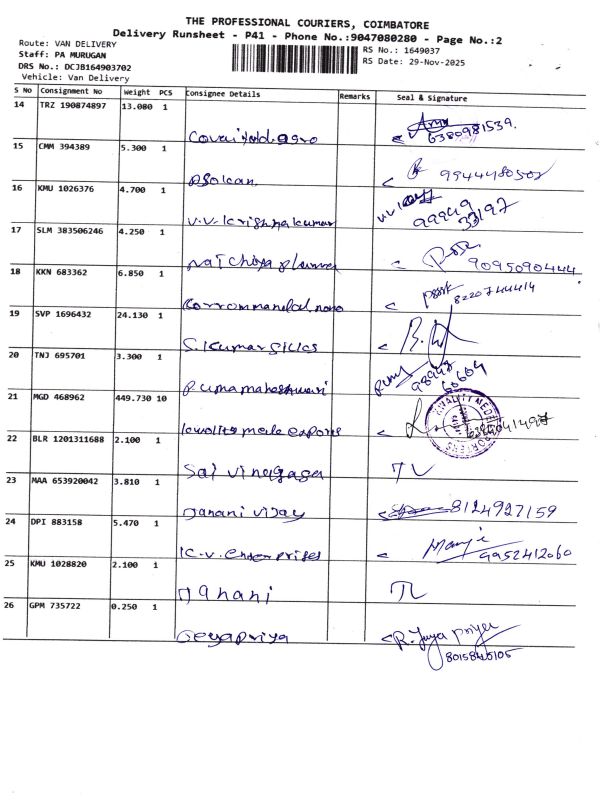 THE PROFESSIONAL COURIERS, COIMBATORE
Delivery Runsheet - P41 - Phone No.:9047080280 - Page No.:2
Route: VAN DELIVERY
Staff: PA MURUGAN
DRS No.: DCJB164903702
Vehicle: Van Delivery
RS No.: 1649037
RS Date: 29-Nov-2025
S No Consignment No Weight PCS Consignee Details Remarks Seal & Signature
14 TRZ 190874897 13.080 1
6380981539.
15 CMM 394389 5.300 1
9944480502
16 KMU 1026376 4.700 1
v.v. krishnakumar 99949 33197
17 SLM 383506246 4.250 1
9095090444
18 KKN 683362 6.850 1
8220744414
19 SVP 1696432 24.130 1
S. Kumar silks
20 TNJ 695701 3.300 1
21 MGD 468962 449.730 10
22 BLR 1201311688 2.100 1
Sai vinayaga
23 MAA 653920042 3.810 1
Janani vijay 8124927159
24 DPI 883158 5.470 1
K.v. enterprises 9952412060
25 KMU 1028820 2.100 1
Janani
26 GPM 735722 0.250 1
Jeyapriya R. Jeya priya
8015840105